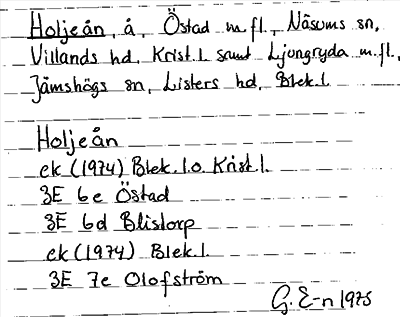 Holjeån, å, Östad m.fl., Näsums sn,
Villands hd, Krist.l. samt Ljungryda m.fl.,
Jämshögs sn, Listers hd, Blek.l.
Holjeån
ek (1974) Blek.l.o. Krist.l.
3E 6e Östad
3E 6d Blistorp
ek (1974) Blek.l.
3E 7e Olofström
G. E-n 1975